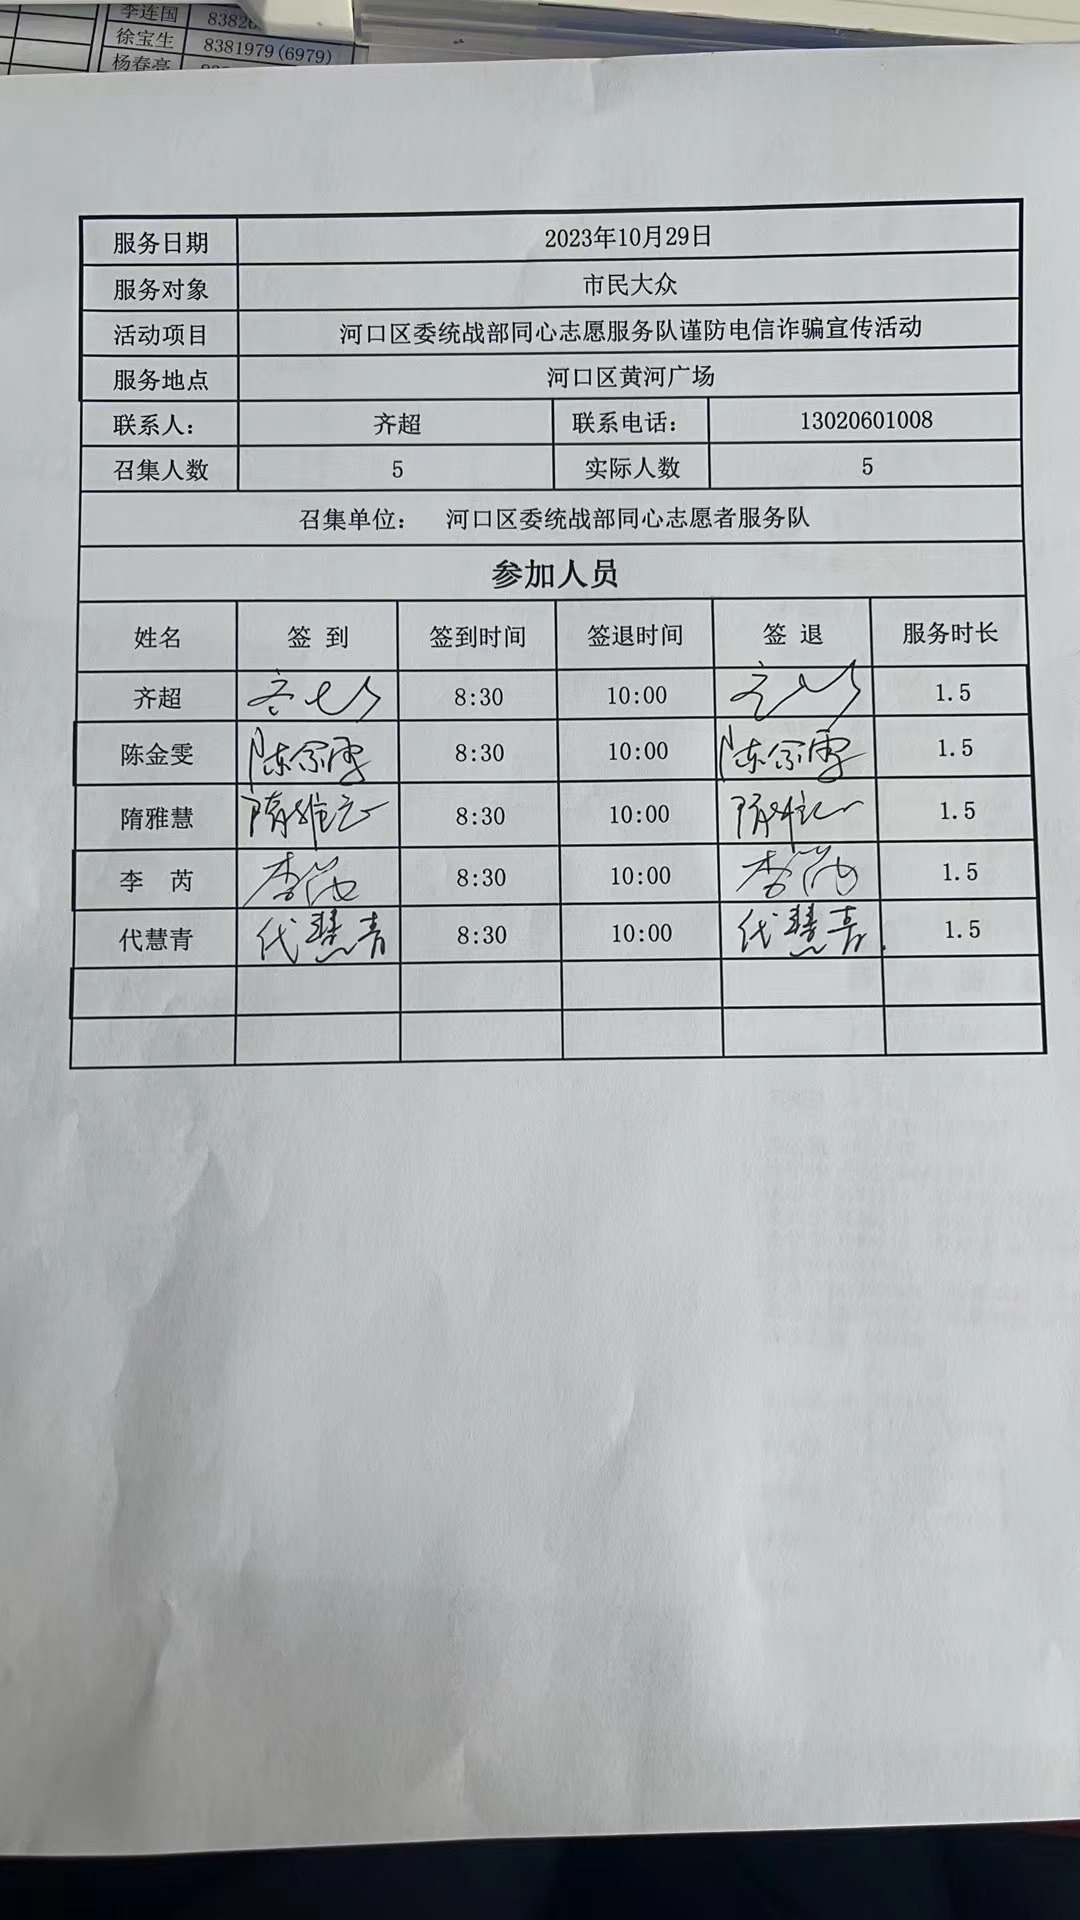 李连国 8382
徐宝生 8381979(6979)
杨春亮
服务日期 2023年10月29日
服务对象 市民大众
活动项目 河口区委统战部同心志愿服务队谨防电信诈骗宣传活动
服务地点 河口区黄河广场
联系人： 齐超 联系电话： 13020601008
召集人数 5 实际人数 5
召集单位： 河口区委统战部同心志愿者服务队
参加人员
姓名 签 到 签到时间 签退时间 签 退 服务时长
齐超 齐超 8:30 10:00 齐超 1.5
陈金雯 陈金雯 8:30 10:00 陈金雯 1.5
隋雅慧 隋雅慧 8:30 10:00 隋雅慧 1.5
李 芮 李芮 8:30 10:00 李芮 1.5
代慧青 代慧青 8:30 10:00 代慧青 1.5